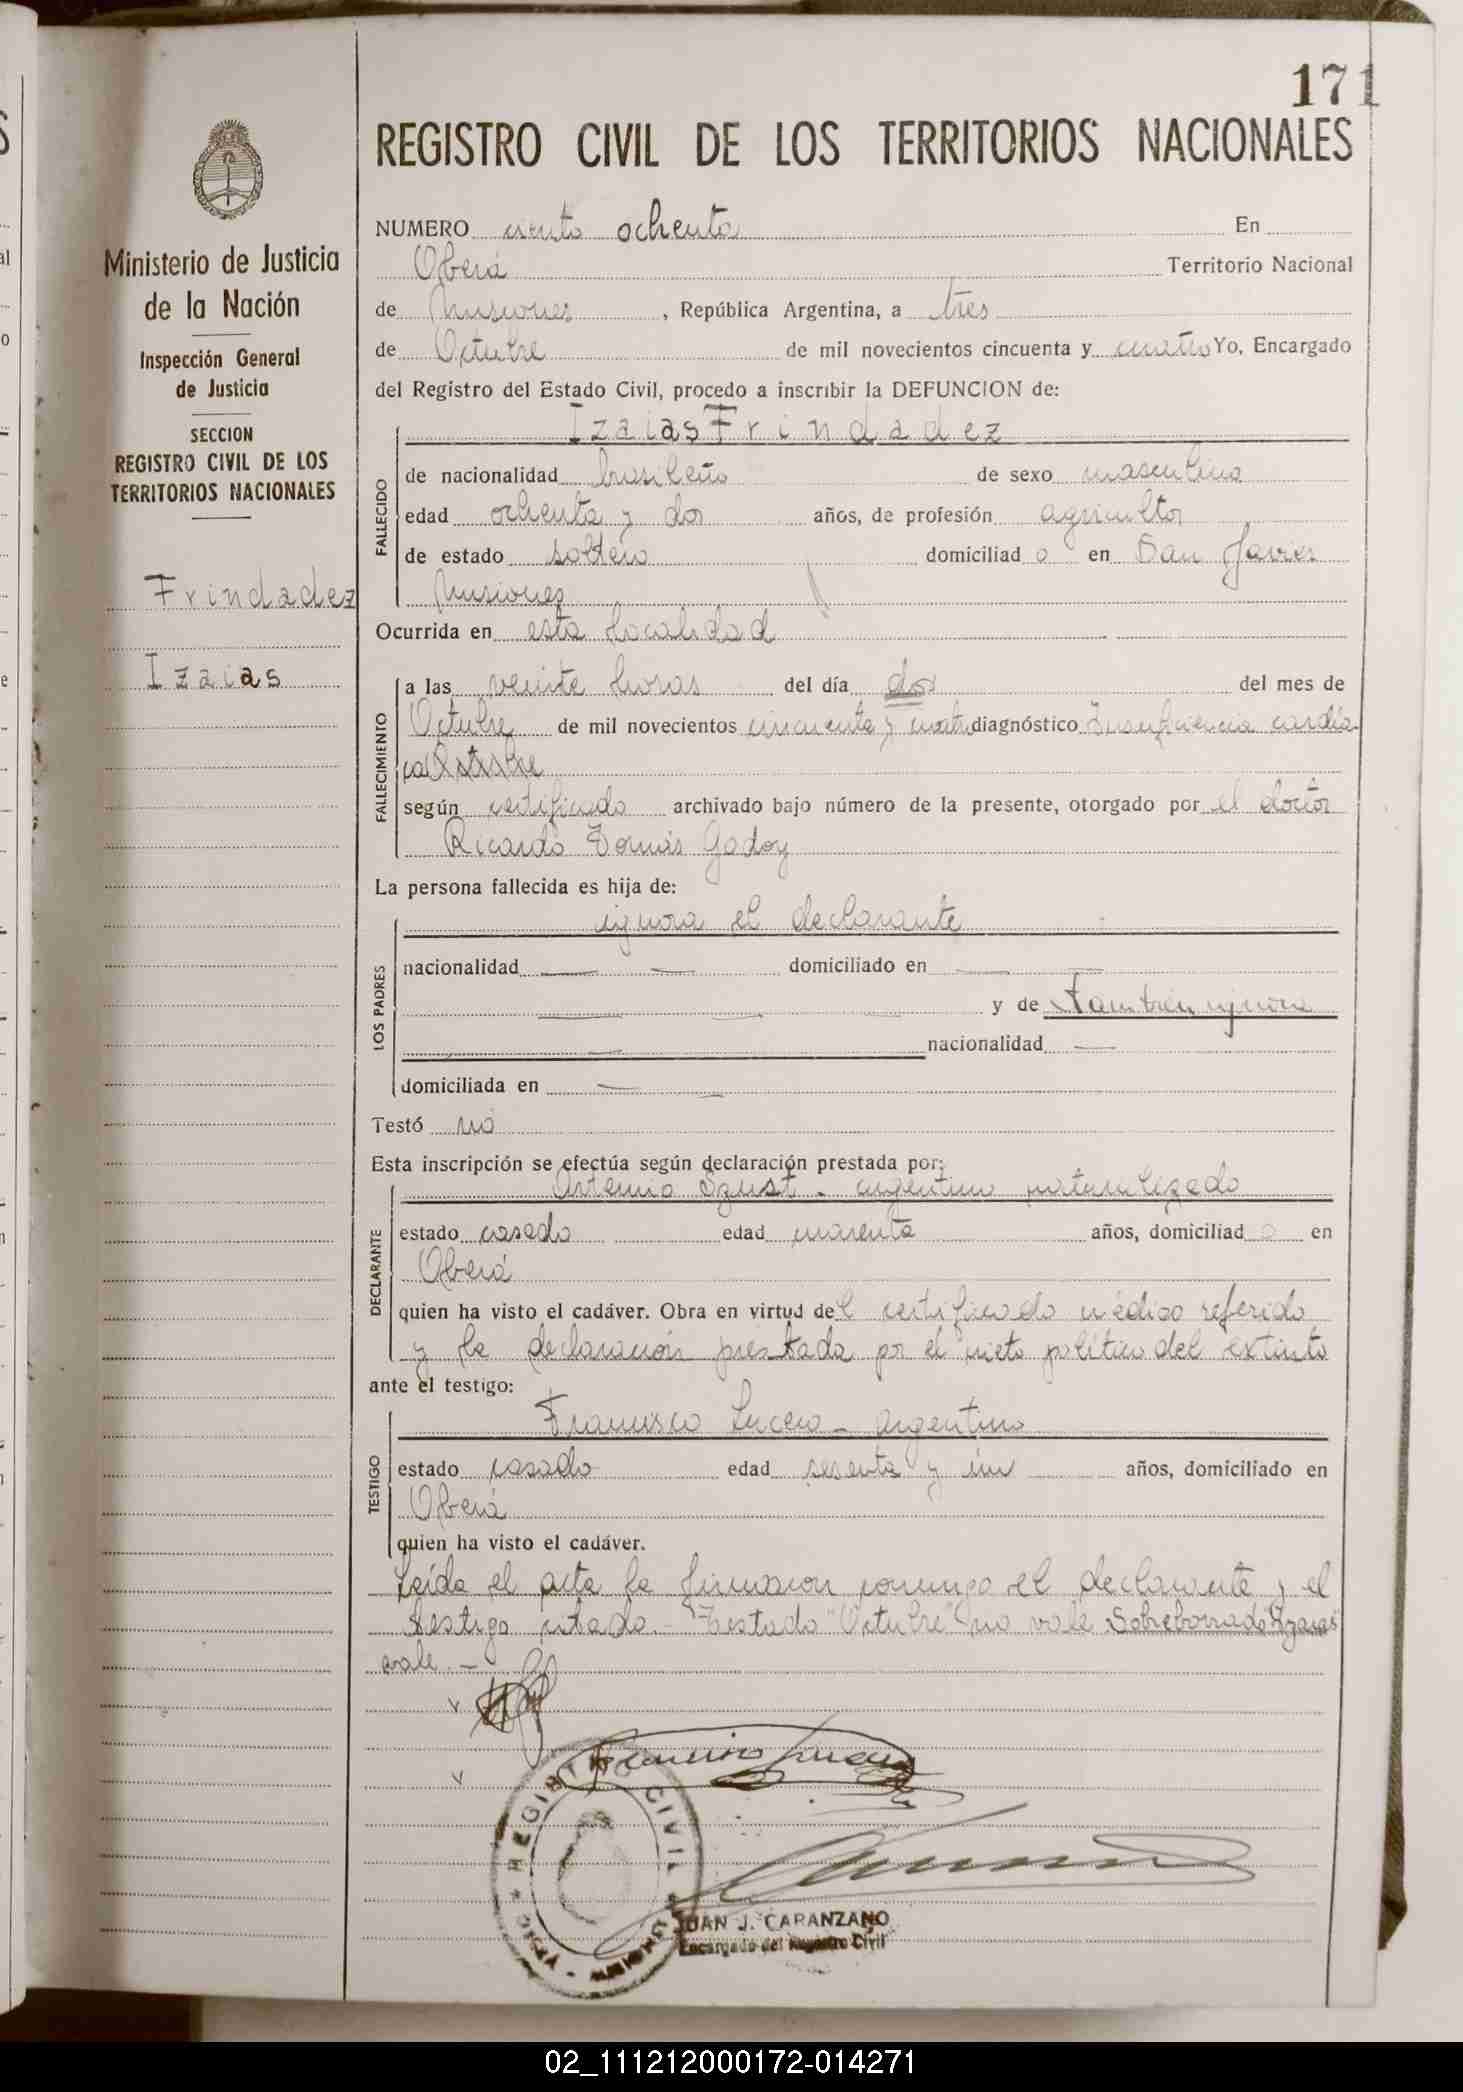 171
REGISTRO CIVIL DE LOS TERRITORIOS NACIONALES
Ministerio de Justicia
de la Nación
Inspección General
de Justicia
SECCION
REGISTRO CIVIL DE LOS
TERRITORIOS NACIONALES
Frindadez
Izaias
NUMERO ciento ochenta En
Oberá Territorio Nacional
de Misiones, República Argentina, a tres
de Octubre de mil novecientos cincuenta y cuatro Yo, Encargado
del Registro del Estado Civil, procedo a inscribir la DEFUNCION de:
FALLECIDO
Izaias Frindadez
de nacionalidad brasileño de sexo masculino
edad ochenta y dos años, de profesión agricultor
de estado soltero domiciliad o en San Javier
Misiones
Ocurrida en esta localidad
FALLECIMIENTO
a las veinte horas del día dos del mes de
Octubre de mil novecientos cincuenta y cuatro diagnóstico Insuficiencia cardía-
ca Octubre
según certificado archivado bajo número de la presente, otorgado por el doctor
Ricardo Tomás Godoy
La persona fallecida es hija de:
LOS PADRES
ignora el declarante
nacionalidad — — domiciliado en — —
— — — y de también ignora
— nacionalidad —
domiciliada en — —
Testó no
Esta inscripción se efectúa según declaración prestada por:
DECLARANTE
Artemio Szust - argentino naturalizado
estado casado edad cuarenta años, domiciliad o en
Oberá
quien ha visto el cadáver. Obra en virtud del certificado médico referido
y la declaración prestada por el nieto político del extinto
ante el testigo:
TESTIGO
Francisco Lucero - argentino
estado casado edad sesenta y un años, domiciliado en
Oberá
quien ha visto el cadáver.
Leída el acta la firmaron conmigo el declarante y el
testigo citado.- Testado "Octubre" no vale Sobreborrado "Izaias"
vale.-
Francisco Lucero
REGISTRO CIVIL
JUAN J. CARANZANO
Encargado del Registro Civil
02_111212000172-014271